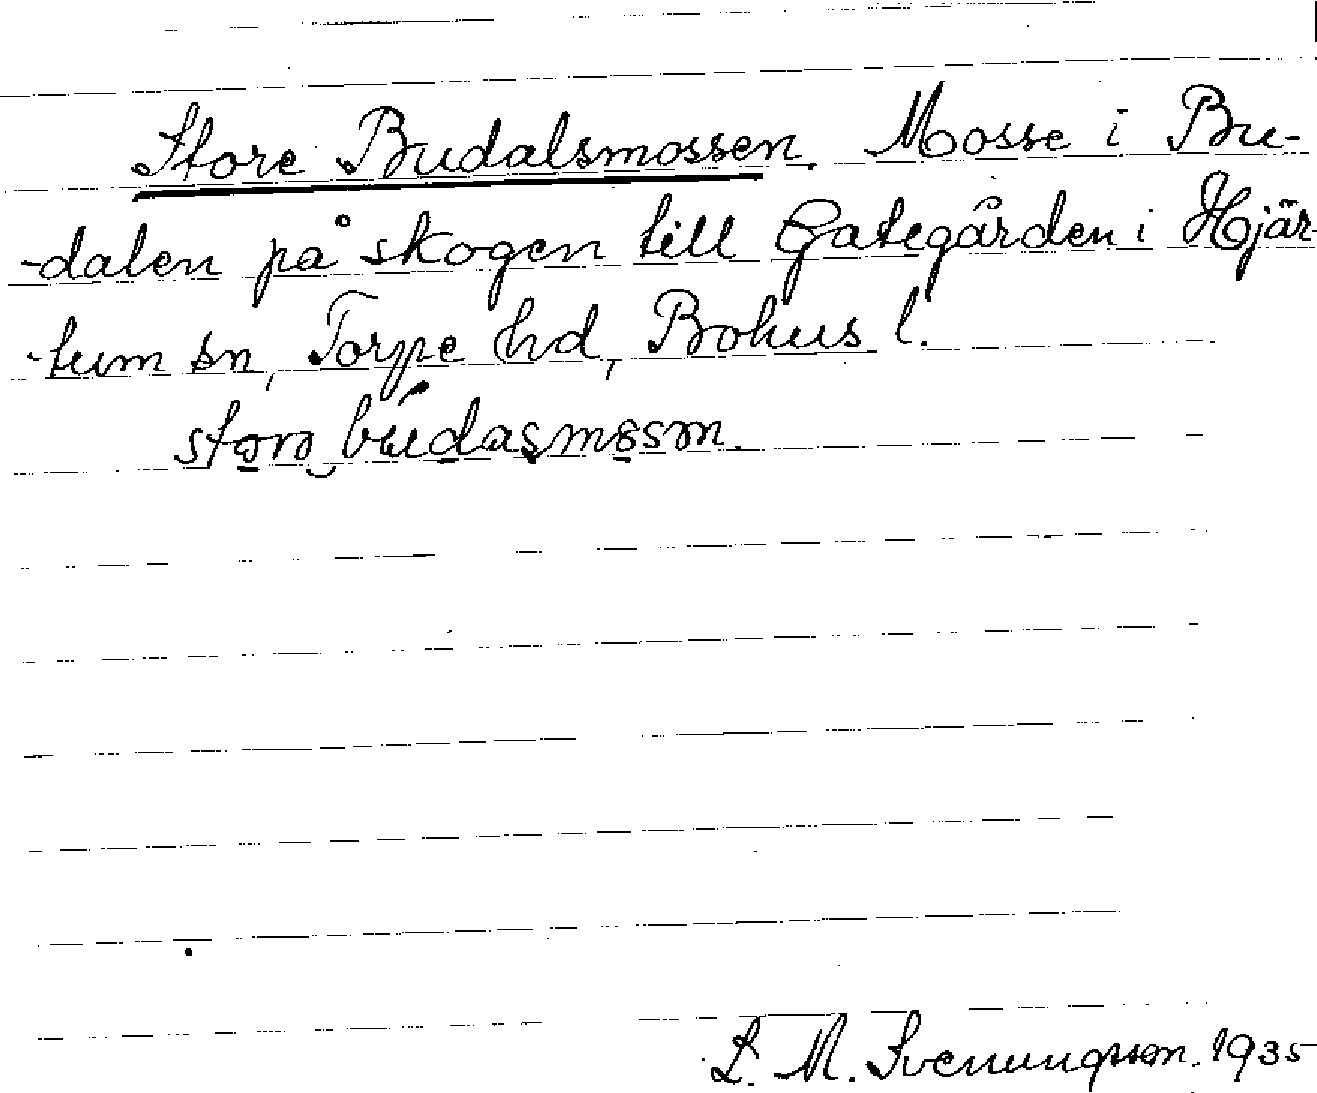 Store Budalsmossen. Mosse i Bu-
-dalen på skogen till Gategården i Hjär-
-tum sn, Torpe hd, Bohus l.
L. M. Svenungsson. 1935